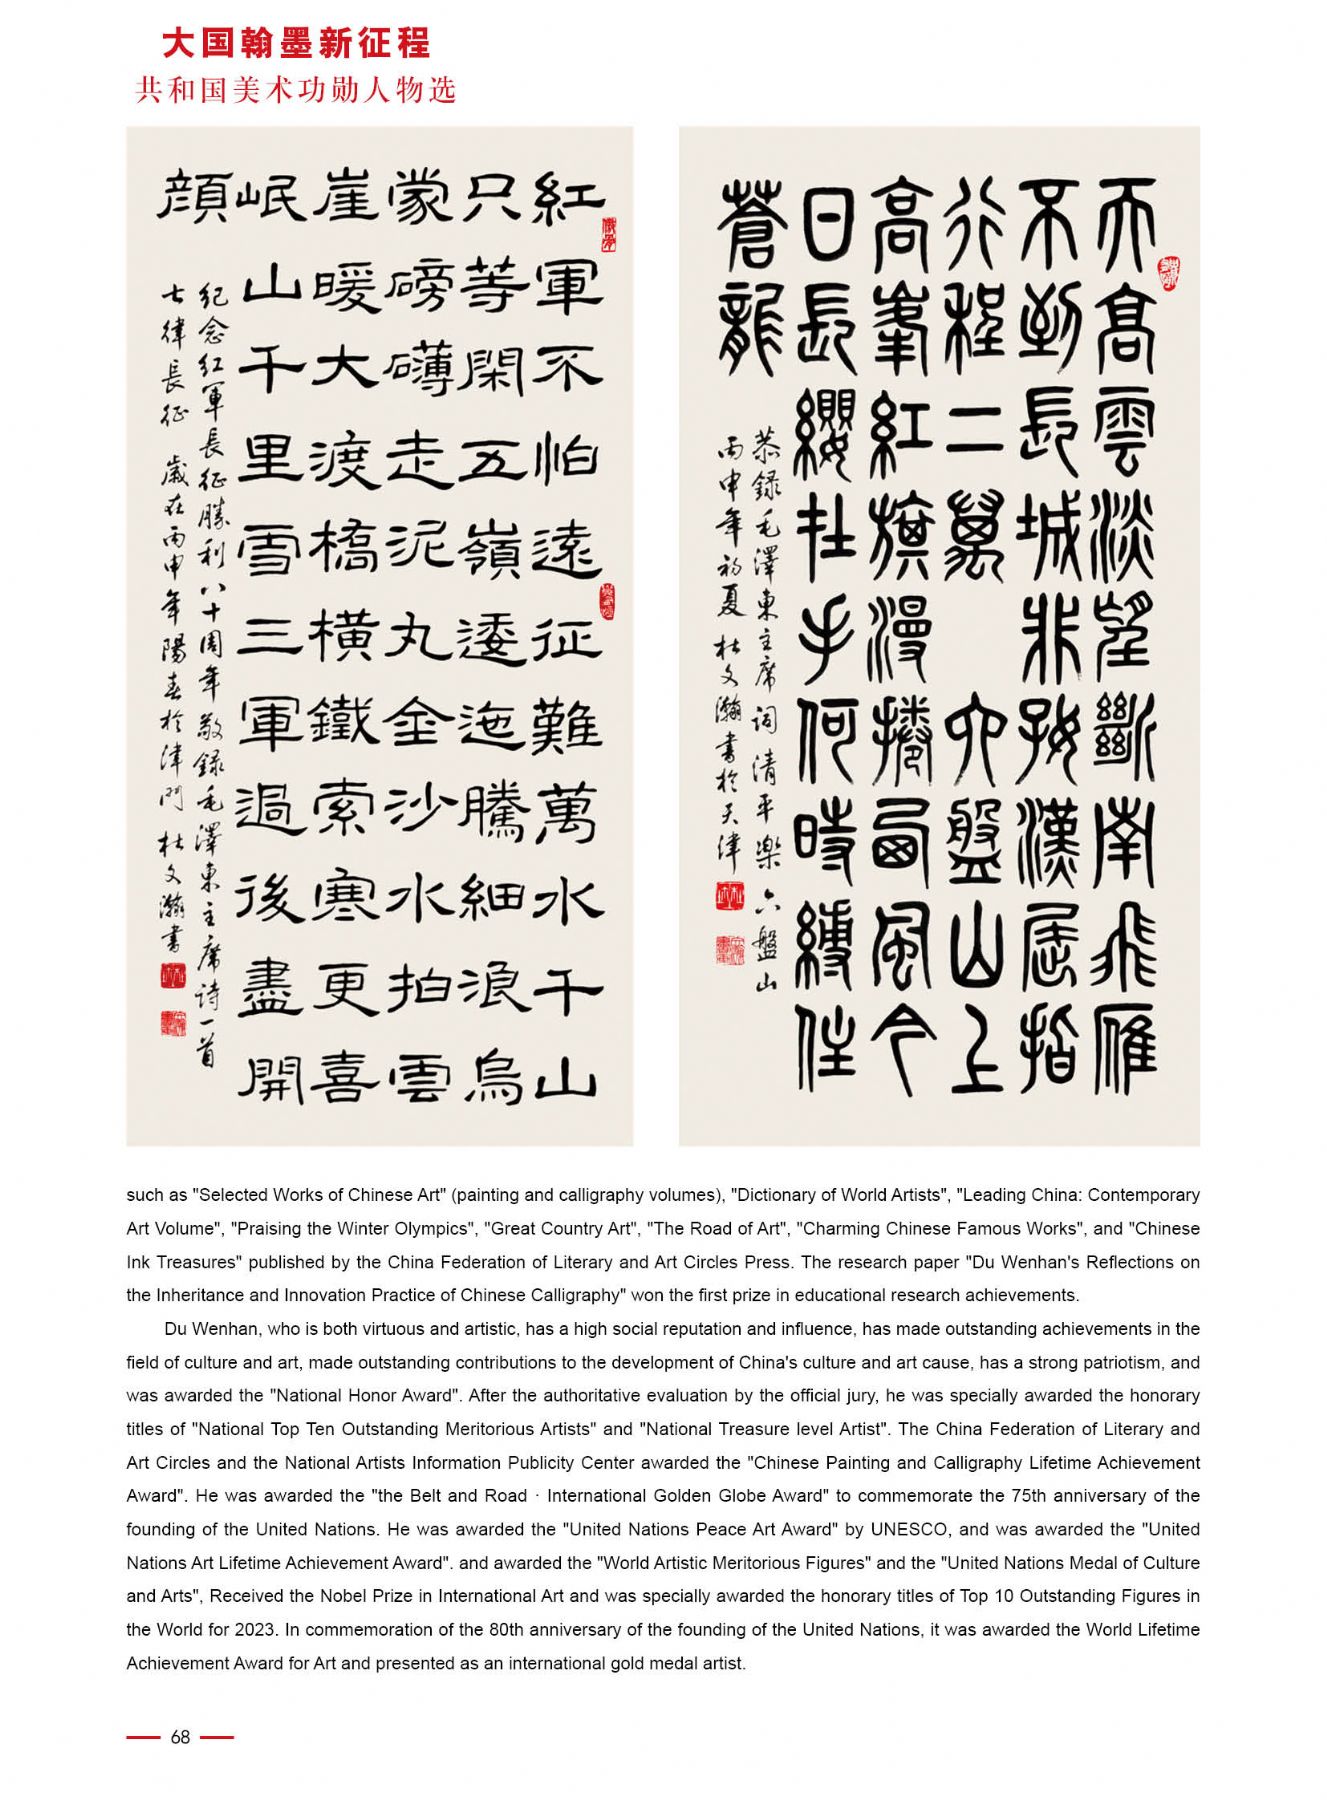 大国翰墨新征程
共和国美术功勋人物选
紅軍不怕遠征難萬水千山
只等閑五嶺逶迤騰細浪烏
蒙磅礴走泥丸金沙水拍雲
崖暖大渡橋橫鐵索寒更喜
岷山千里雪三軍過後盡開
顔
紀念紅軍長征勝利八十周年敬録毛澤東主席詩一首
七律長征 歲在丙申年陽春於津門 杜文瀚書
天高雲淡望斷南飛雁
不到長城非好漢屈指
行程二萬 六盤山上
高峯紅旗漫捲西風今
日長纓在手何時縛住
蒼龍
恭録毛澤東主席詞清平樂 六盤山
丙申年初夏 杜文瀚書於天津
such as "Selected Works of Chinese Art" (painting and calligraphy volumes), "Dictionary of World Artists", "Leading China: Contemporary
Art Volume", "Praising the Winter Olympics", "Great Country Art", "The Road of Art", "Charming Chinese Famous Works", and "Chinese
Ink Treasures" published by the China Federation of Literary and Art Circles Press. The research paper "Du Wenhan's Reflections on
the Inheritance and Innovation Practice of Chinese Calligraphy" won the first prize in educational research achievements.
Du Wenhan, who is both virtuous and artistic, has a high social reputation and influence, has made outstanding achievements in the
field of culture and art, made outstanding contributions to the development of China's culture and art cause, has a strong patriotism, and
was awarded the "National Honor Award". After the authoritative evaluation by the official jury, he was specially awarded the honorary
titles of "National Top Ten Outstanding Meritorious Artists" and "National Treasure level Artist". The China Federation of Literary and
Art Circles and the National Artists Information Publicity Center awarded the "Chinese Painting and Calligraphy Lifetime Achievement
Award". He was awarded the "the Belt and Road · International Golden Globe Award" to commemorate the 75th anniversary of the
founding of the United Nations. He was awarded the "United Nations Peace Art Award" by UNESCO, and was awarded the "United
Nations Art Lifetime Achievement Award". and awarded the "World Artistic Meritorious Figures" and the "United Nations Medal of Culture
and Arts", Received the Nobel Prize in International Art and was specially awarded the honorary titles of Top 10 Outstanding Figures in
the World for 2023. In commemoration of the 80th anniversary of the founding of the United Nations, it was awarded the World Lifetime
Achievement Award for Art and presented as an international gold medal artist.
68